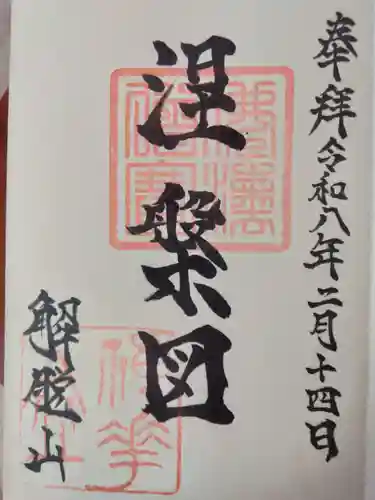 奉拝令和八年二月十四日
涅槃図
解脱山